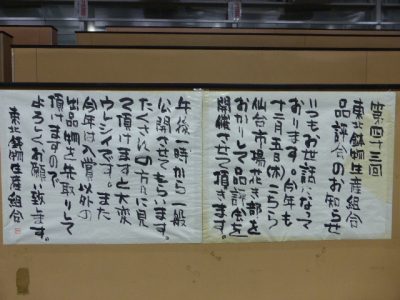 第四十三回
東北鉢物生産組合
品評会のお知らせ
いつもお世話になって
おります。今年も
十二月五日(休)こちら
仙台市場花き部を
おかりして品評会を
開催させて頂きます。
午後一時から一般
公開させてもらいます。
たくさんの方々に見
て頂けますと大変
ウレシイです。また
今年は入賞以外の
出品物を先取りして
頂けますので
よろしくお願い致ます。
東北鉢物生産組合